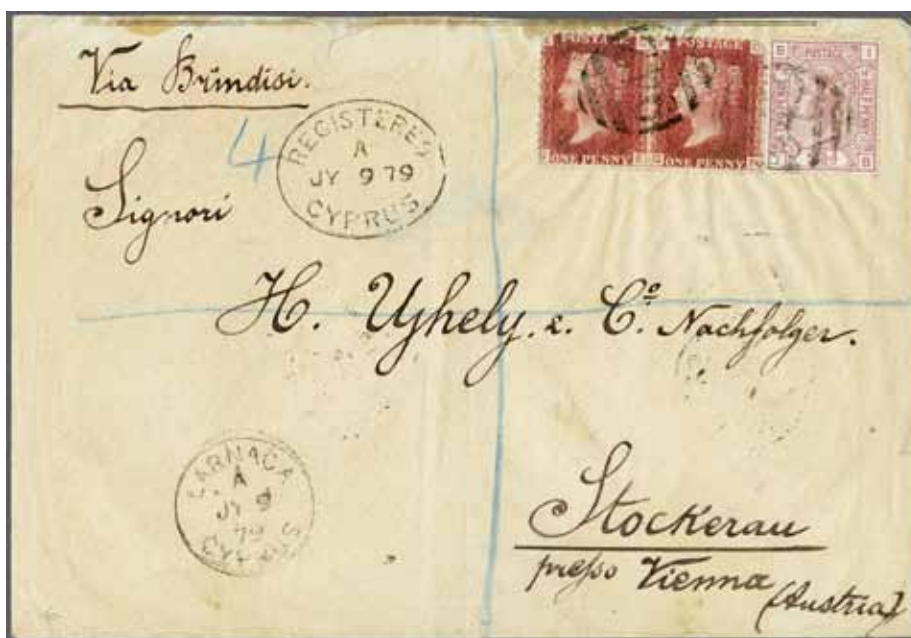 Via Brindisi.
4
REGISTERED
A
JY 9 79
CYPRUS
POSTAGE
ONE PENNY
POSTAGE
ONE PENNY
POSTAGE
Signori
H. Ujhely. & Cº. Nachfolger.
LARNACA
A
JY 9
79
CYPRUS
Stockerau
presso Vienna
(Austria)